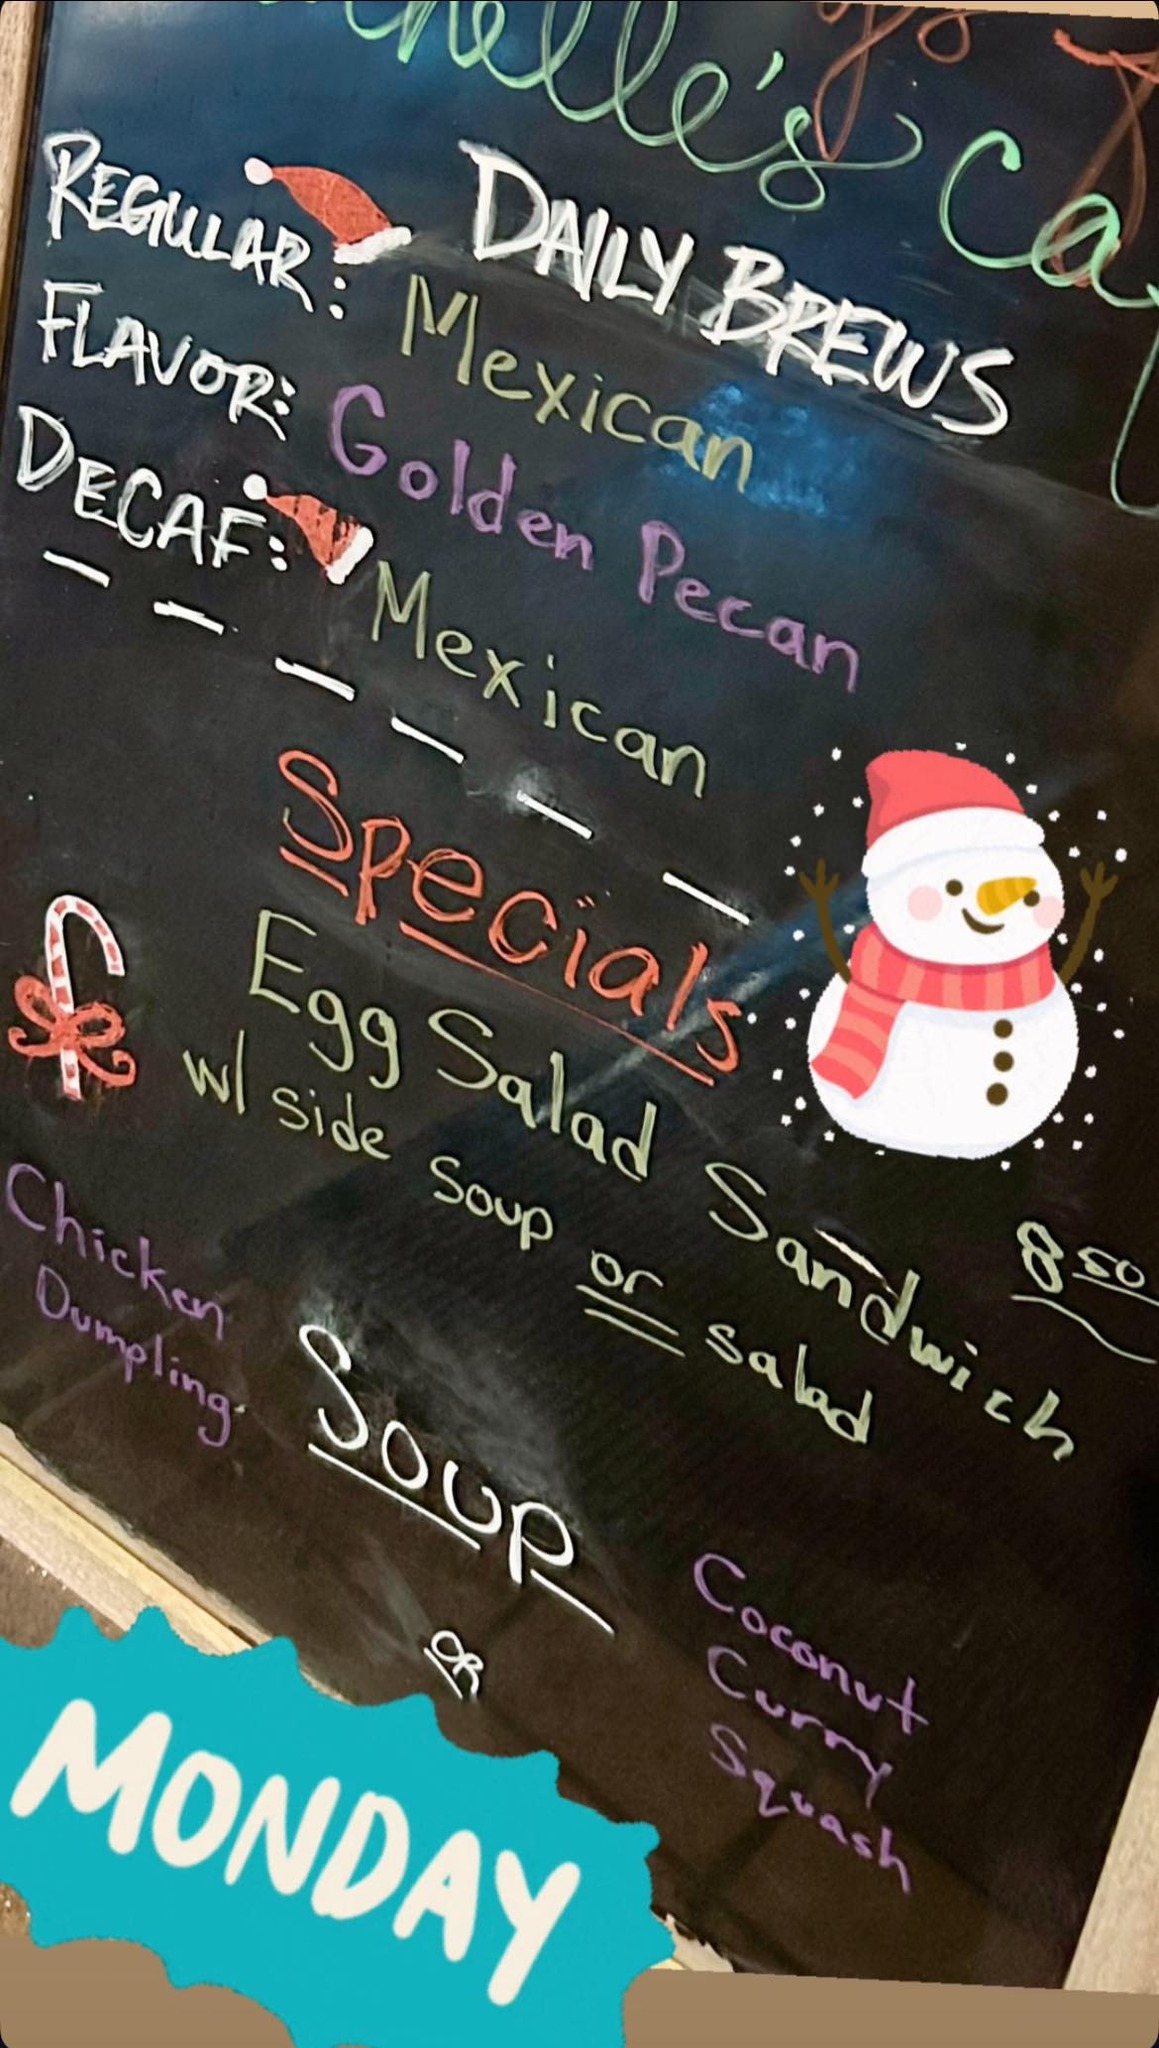 chelle's Ca
DAILY BREWS
REGULAR: Mexican
FLAVOR: Golden Pecan
DECAF: Mexican
Specials
Egg Salad Sandwich 8 50
w/ side soup or salad
Soup
Chicken
Dumpling
OR
Coconut
Curry
Squash
MONDAY